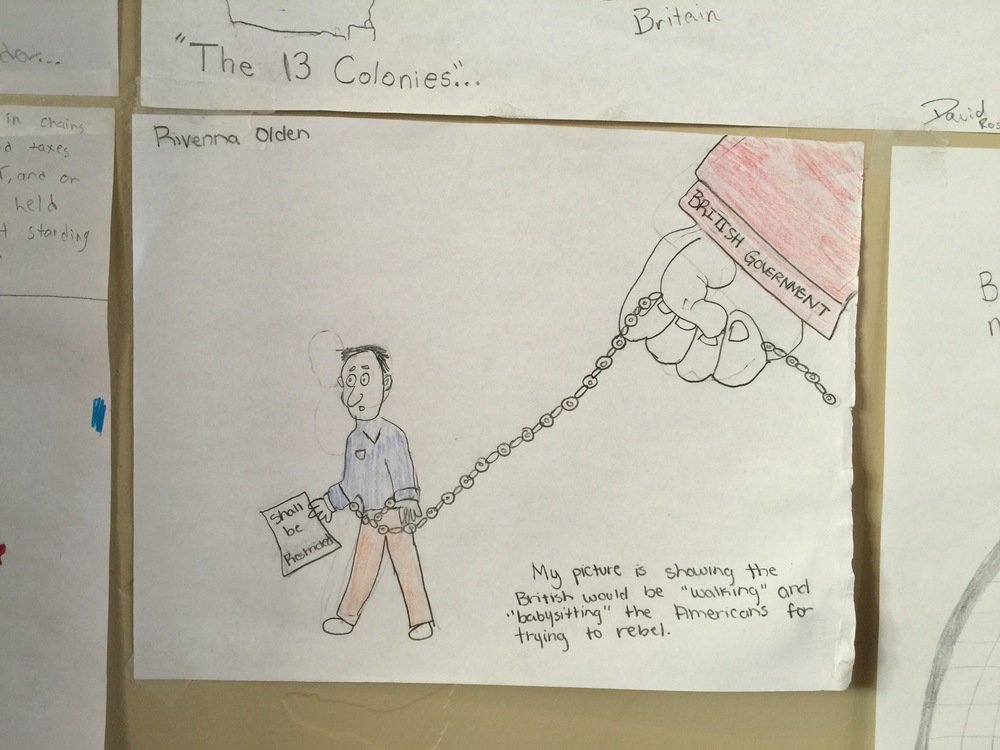 Britain
"The 13 Colonies"...
David
Rivenna Olden
in chains
taxes
and or
held
standing
BRITISH GOVERNMENT
Shall
be
Restricted
My picture is showing the
British would be "walking" and
"babysitting" the Americans for
trying to rebel.
B